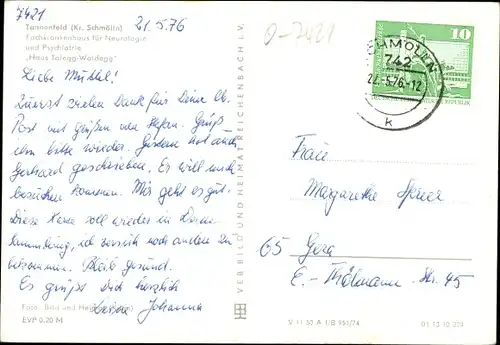 7421
21.5.76
Tannenfeld (Kr. Schmölln)
Fachkrankenhaus für Neurologie
und Psychiatrie
„Haus Talegg-Waldegg"
0-7421
10
SCHMÖLLN
742
-5.76-12
k
Liebe
Zuerst vielen Dank für Deine lb.
Post mit Grüßen von Stefan. Grüß
ihn bitte wieder. Gestern hat auch
Gerhard geschrieben. Er will mich
besuchen kommen. Mir geht es gut.
Diese Karte soll wieder in Deine
Sammlung, ich versuch noch andere zu
bekommen. Bleib gesund.
Es grüßt Dich herzlich
Deine Johanna
Frau
Margarethe
65 Gera
E.-Thälmann-Str. 45
VERBILD UND HEIMAT REICHENBACH I. V.
Foto: Bild und Heimat
EVP 0,20 M
V 11 50 A 1/B 951/74
01 13 10 224